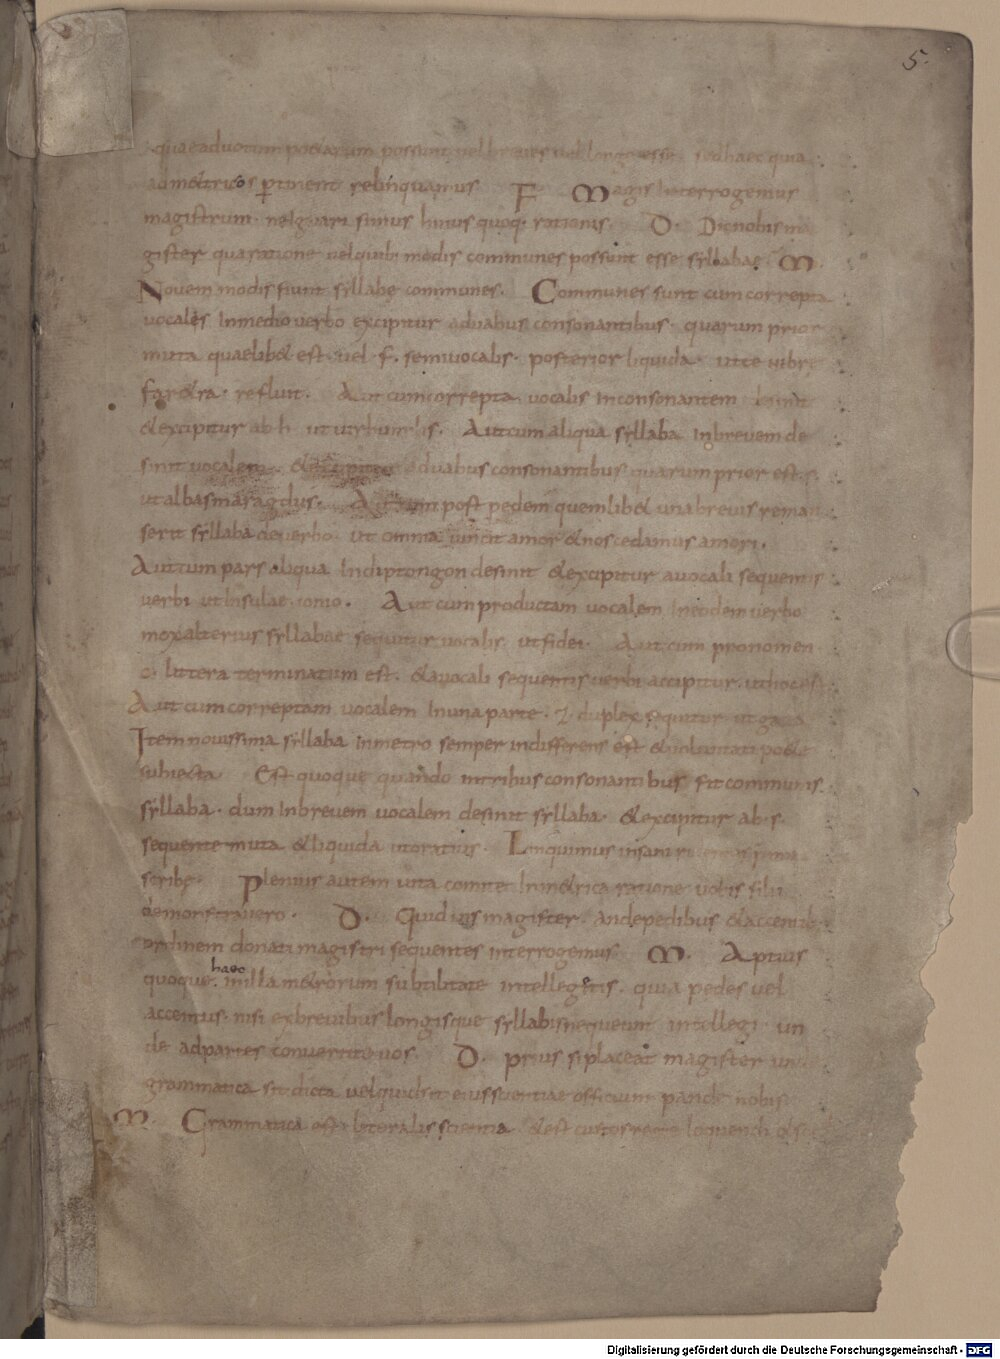 5.
quae ad uotum poetarum possunt uel breues uel longae esse. sed haec quia
ad metricos ꝑtinent relinquamus F Magis Interrogemus
magistrum. ne Ignari simus huius quoq. rationis. D. Dic nobis ma
gister qua ratione uel quib. modis communes possunt esse syllabae. M.
Nouem modis fiunt syllabe communes. Communes sunt cum correpta
uocales In medio uerbo excipitur a duabus consonantibus. quarum prior
muta quaelibet est. uel .f. semiuocalis. posterior liquida. ut
faretra. refluit. Aut cum correpta uocalis In consonantem
& excipitur ab h. ut Aut cum aliqua syllaba In breuem de
sinit uocalem. & excipitur a duabus consonantibus quarum prior est .s.
ut alba smaragdus. Aut cum post pedem quemlibet una breuis reman
serit syllaba de uerbo. ut omnia uincit amor & nos cedamus amori.
Aut cum pars aliqua In diptongon desinit & excipitur a uocali sequentis
uerbi ut Insulae ionio. Aut cum productam uocalem In eodem uerbo
mox alterius syllabae sequitur uocalis. ut fidei. Aut cum pronomen
c. littera terminatum est. & a uocali sequentis uerbi accipitur. ut hoc est
Aut cum correptam uocalem In una parte .z. duplex sequitur ut gaza
Item nouissima syllaba In metro semper indifferens est & uoluntati poetae
subiecta Est quoque quando in tribus consonantibus fit communis
syllaba. dum In breuem uocalem desinit syllaba. & excipitur ab .s.
sequente muta & liquida ut oratius. Linquimus insani
scribe. Plenius autem uita comite In metrica ratione uobis filii
demonstrauero. D. Quid uis magister. an de pedibus & accentib.
ordinem donati magistri sequentes interrogemus M. Aptius
quoque. haec in illa metrorum subtilitate intellegetis. quia pedes uel
accentus. nisi ex breuibus longisque syllabis nequeunt intellegi un
de ad partes conuertite uos. D. prius si placeat magister un
grammatica sit dicta uel quid sit eius scientiae officium pande nobis
M. Grammatica est litteralis scientia. & est custos recte loquendi & sc
Digitalisierung gefördert durch die Deutsche Forschungsgemeinschaft - DFG